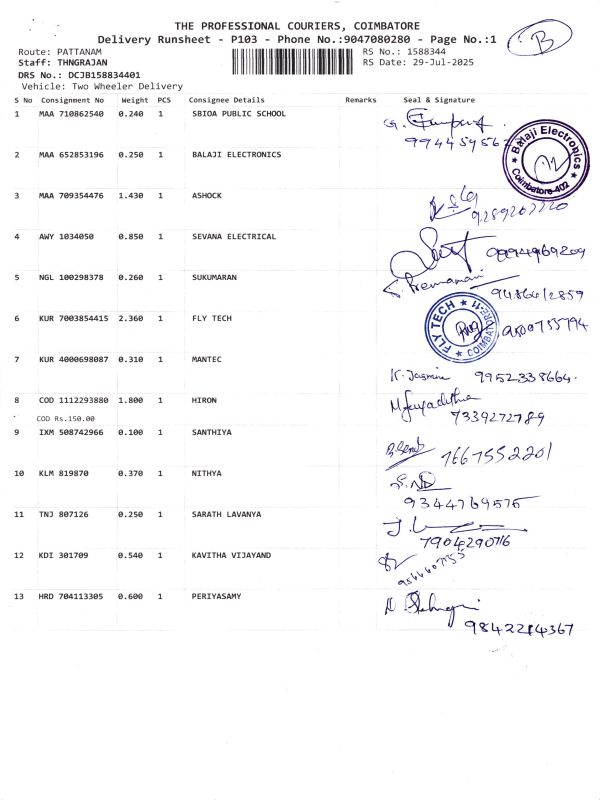 THE PROFESSIONAL COURIERS, COIMBATORE
Delivery Runsheet - P103 - Phone No.:9047080280 - Page No.:1
B
Route: PATTANAM RS No.: 1588344
Staff: THNGRAJAN RS Date: 29-Jul-2025
DRS No.: DCJB158834401
Vehicle: Two Wheeler Delivery
S No Consignment No Weight PCS Consignee Details Remarks Seal & Signature
1 MAA 710862540 0.240 1 SBIOA PUBLIC SCHOOL
2 MAA 652853196 0.250 1 BALAJI ELECTRONICS
Balaji Electronics
Coimbatore-402
3 MAA 709354476 1.430 1 ASHOCK
4 AWY 1034050 0.850 1 SEVANA ELECTRICAL
9994969209
5 NGL 100298378 0.260 1 SUKUMARAN
6 KUR 7003854415 2.360 1 FLY TECH
FLY TECH
9500755794
7 KUR 4000698087 0.310 1 MANTEC
K. Jasmine 9952338664.
8 COD 1112293880 1.800 1 HIRON
7339272789
COD Rs.150.00
9 IXM 508742966 0.100 1 SANTHIYA
7667552201
10 KLM 819870 0.370 1 NITHYA
9344769576
11 TNJ 807126 0.250 1 SARATH LAVANYA
7904290716
12 KDI 301709 0.540 1 KAVITHA VIJAYAND
13 HRD 704113305 0.600 1 PERIYASAMY
9842214367